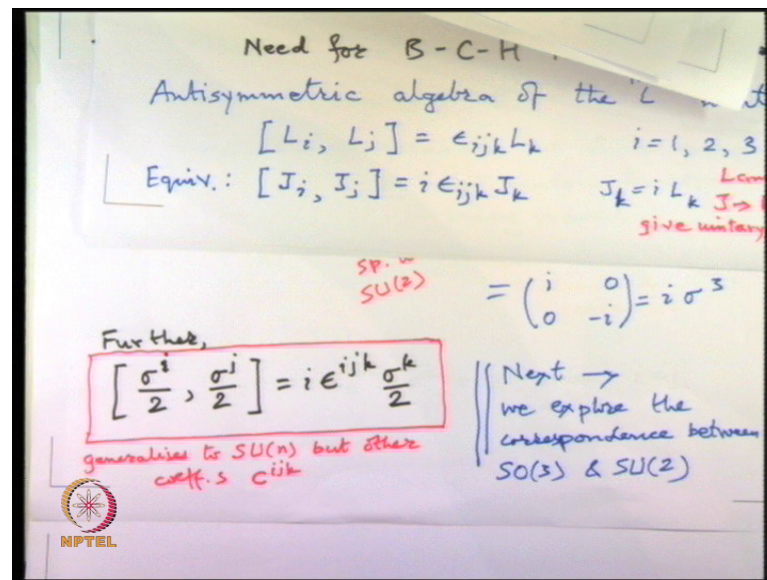 Need for B-C-H
Antisymmetric algebra of the L
[Li, Lj] = εijk Lk i = 1, 2, 3
Equiv.: [Ji, Jj] = i εijk Jk Jk = i Lk
give unitary
SU(2)
= (i 0 0 -i) = i σ³
Further,
[σ^i/2, σ^j/2] = i ε^ijk σ^k/2
generalises to SU(n) but other
coeff.s C^ijk
Next →
we explore the
correspondence between
SO(3) & SU(2)
NPTEL